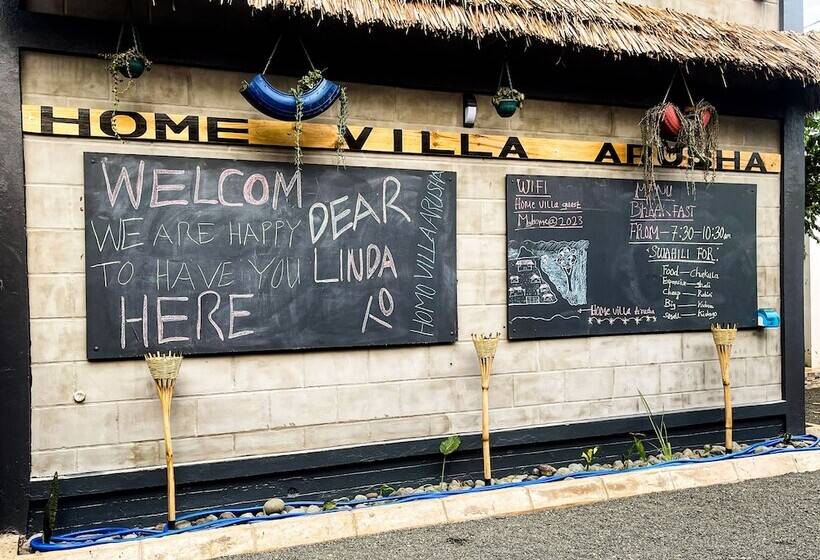 HOME VILLA ARUSHA
WELCOM
WE ARE HAPPY
TO HAVE YOU
HERE
DEAR
LINDA
TO
HOMO VILLA ARUSHA
WIFI
Home villa guest
Myhome@2023
MENU
BREAKFAST
FROM - 7:30 - 10:30 am
SWAHILI FOR:
Food — Chakula
Expensive — Ghali
Cheap — Rahisi
Big — Kubwa
Small — Kidogo
Home villa Arusha